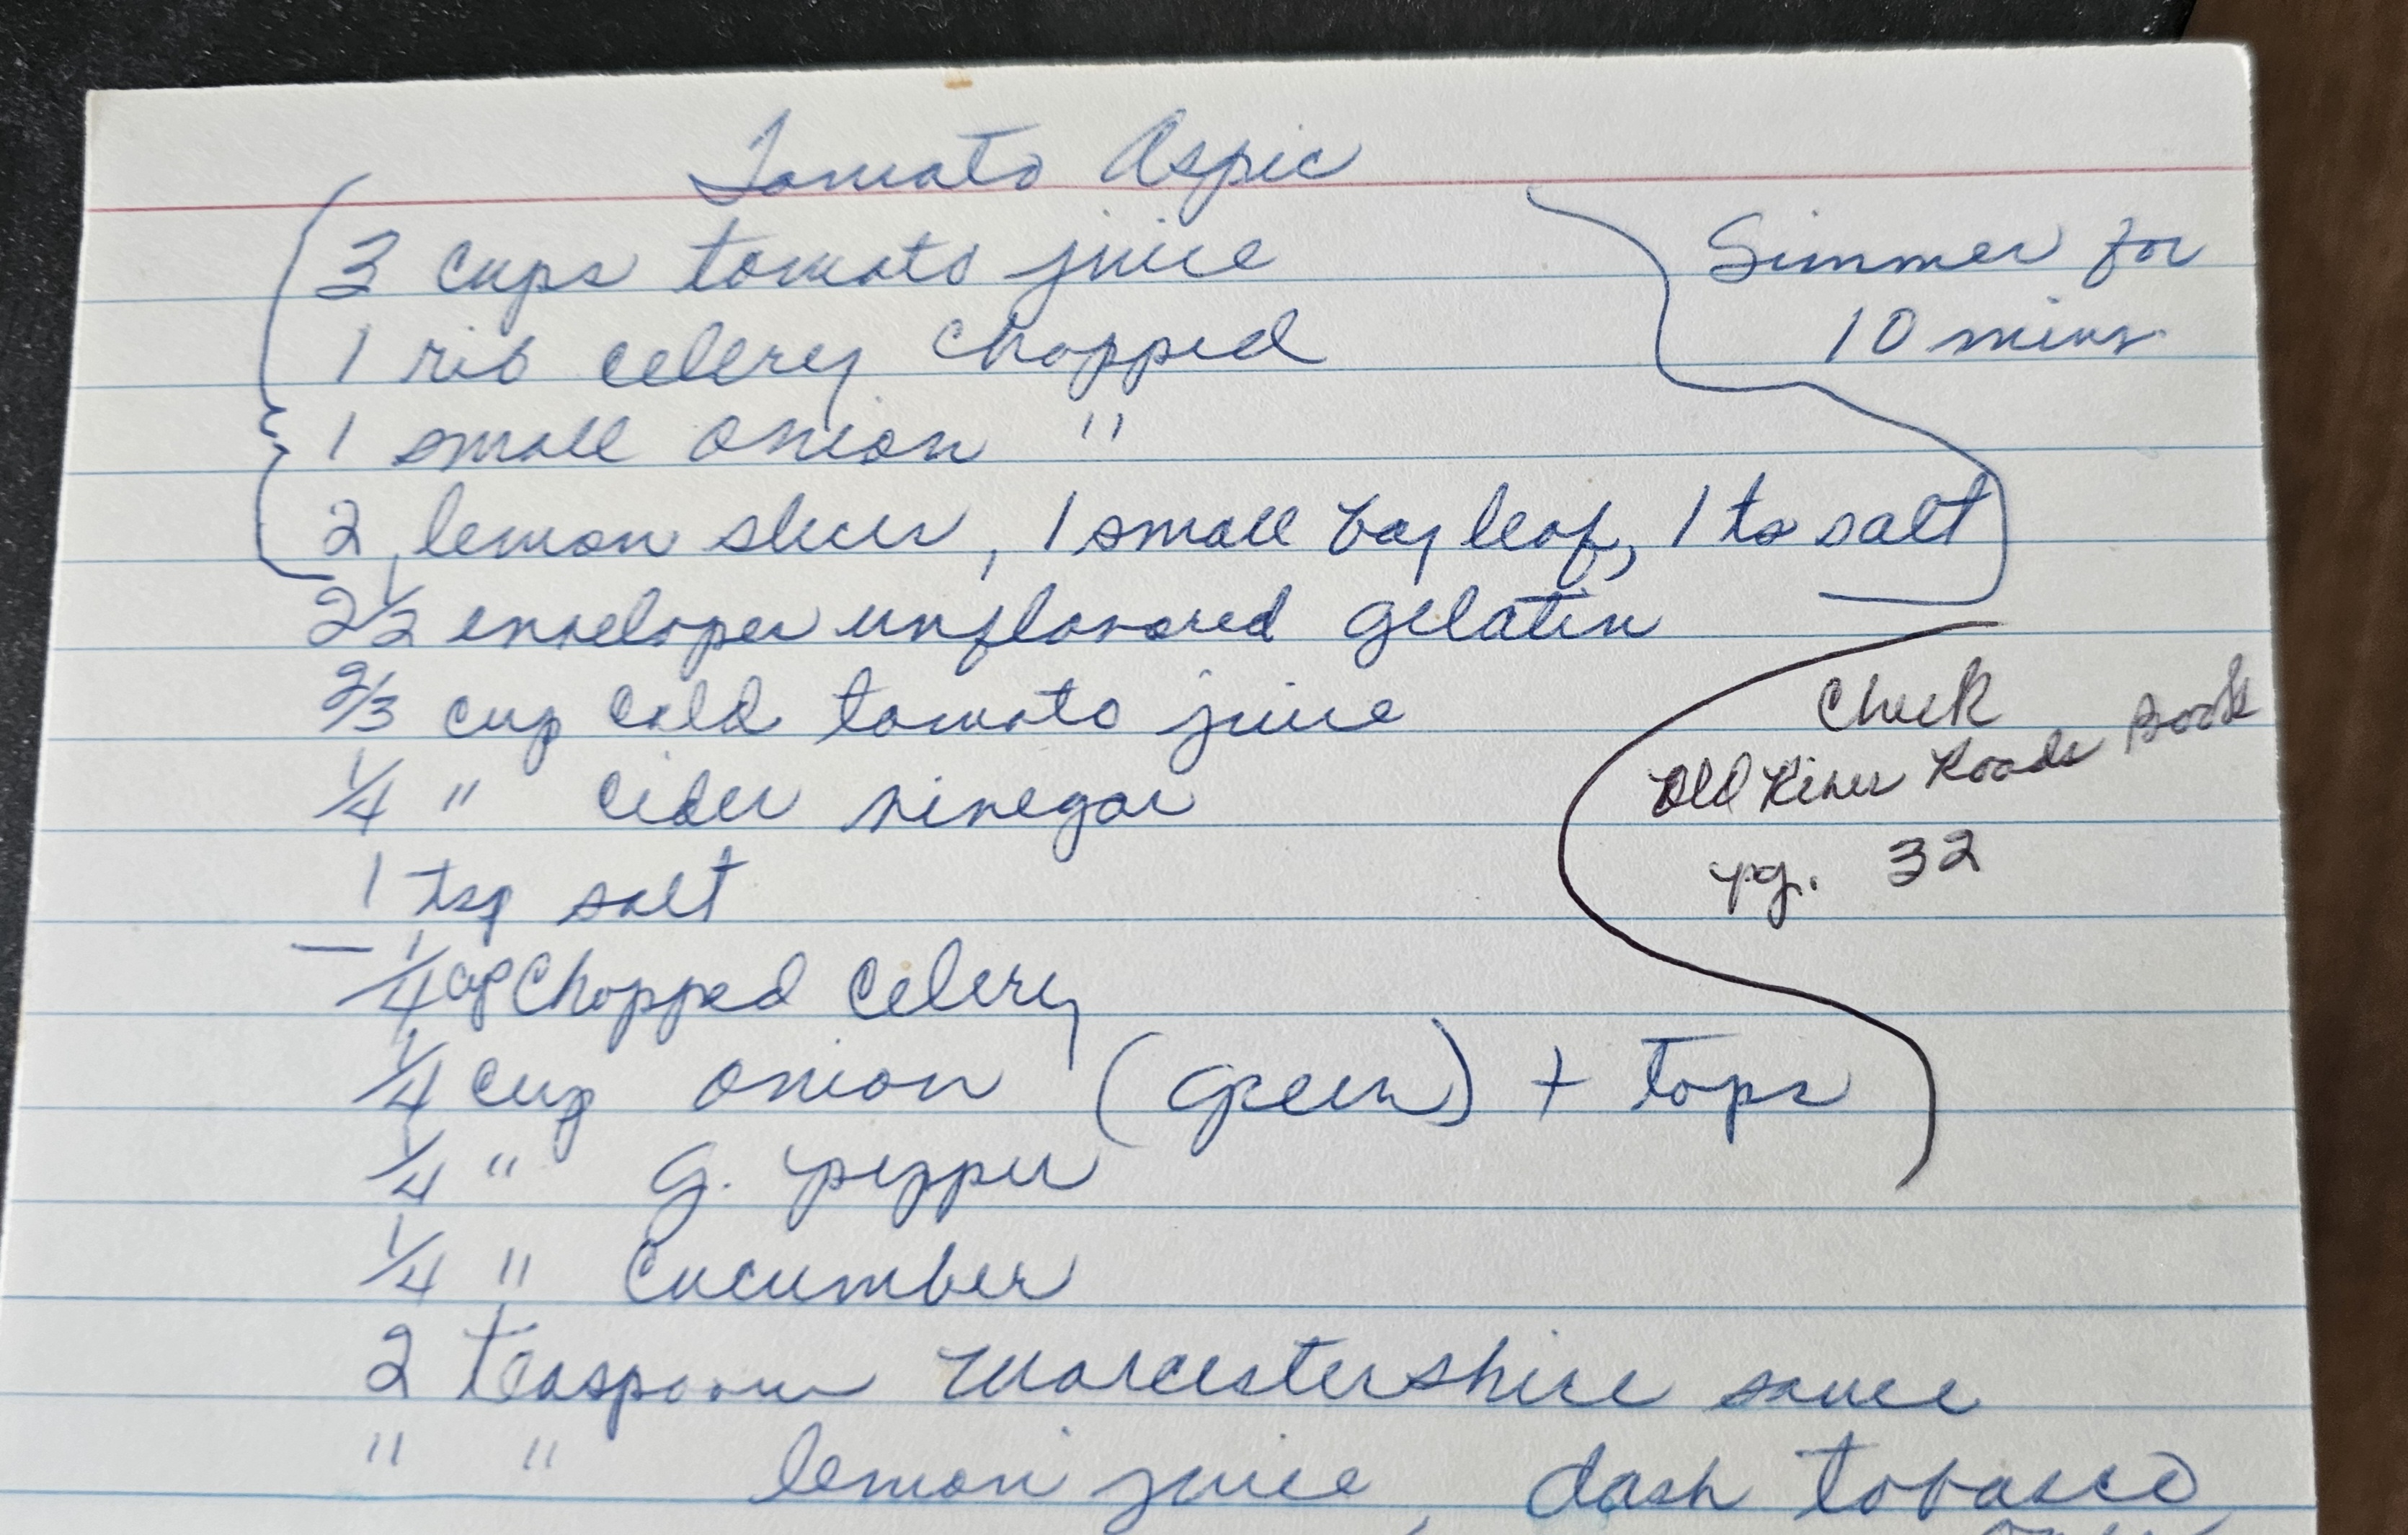 Tomato Aspic
3 cups tomato juice
1 rib celery chopped
1 small onion "
2 lemon slices, 1 small bay leaf, 1 ts salt
Simmer for
10 mins.
2 1/2 envelopes unflavored gelatin
2/3 cup cold tomato juice
1/4 " cider vinegar
1 tsp salt
Check
Old River Roads Book
pg. 32
— 1/4 cup chopped celery
1/4 cup onion (green) + tops
1/4 " G. pepper
1/4 " Cucumber
2 teaspoons Worcestershire sauce
" " lemon juice, dash tobasco